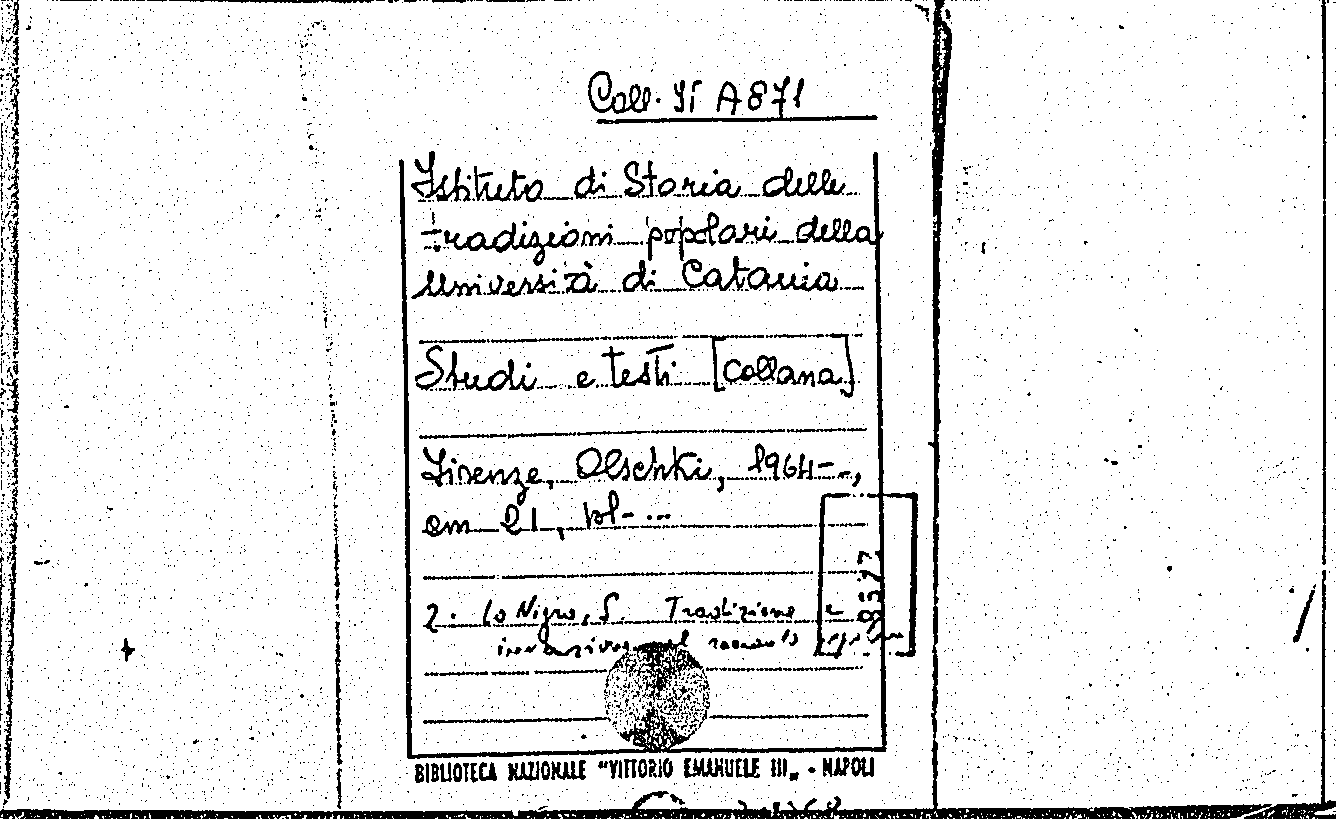 Coll. Yi A871
Istituto di Storia delle
tradizioni popolari della
Università di Catania
Studi e testi [Collana]
Firenze, Olschki, 1964-..,
cm 21, vl- ...
2. Lo Nigro, S. Tradizione e
invenzione nel racconto
8577
BIBLIOTECA NAZIONALE "VITTORIO EMANUELE III„ - NAPOLI